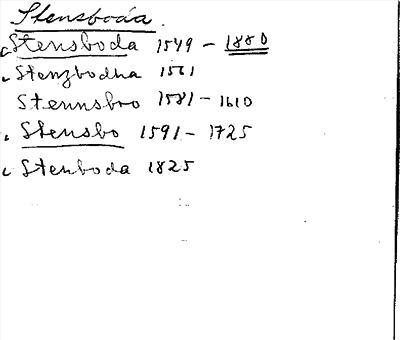 Stensboda.
Stensboda 1549 - 1880
Stenzbodha 1561
Stennsbro 1581 - 1610
Stensbo 1591 - 1725
Stenboda 1825